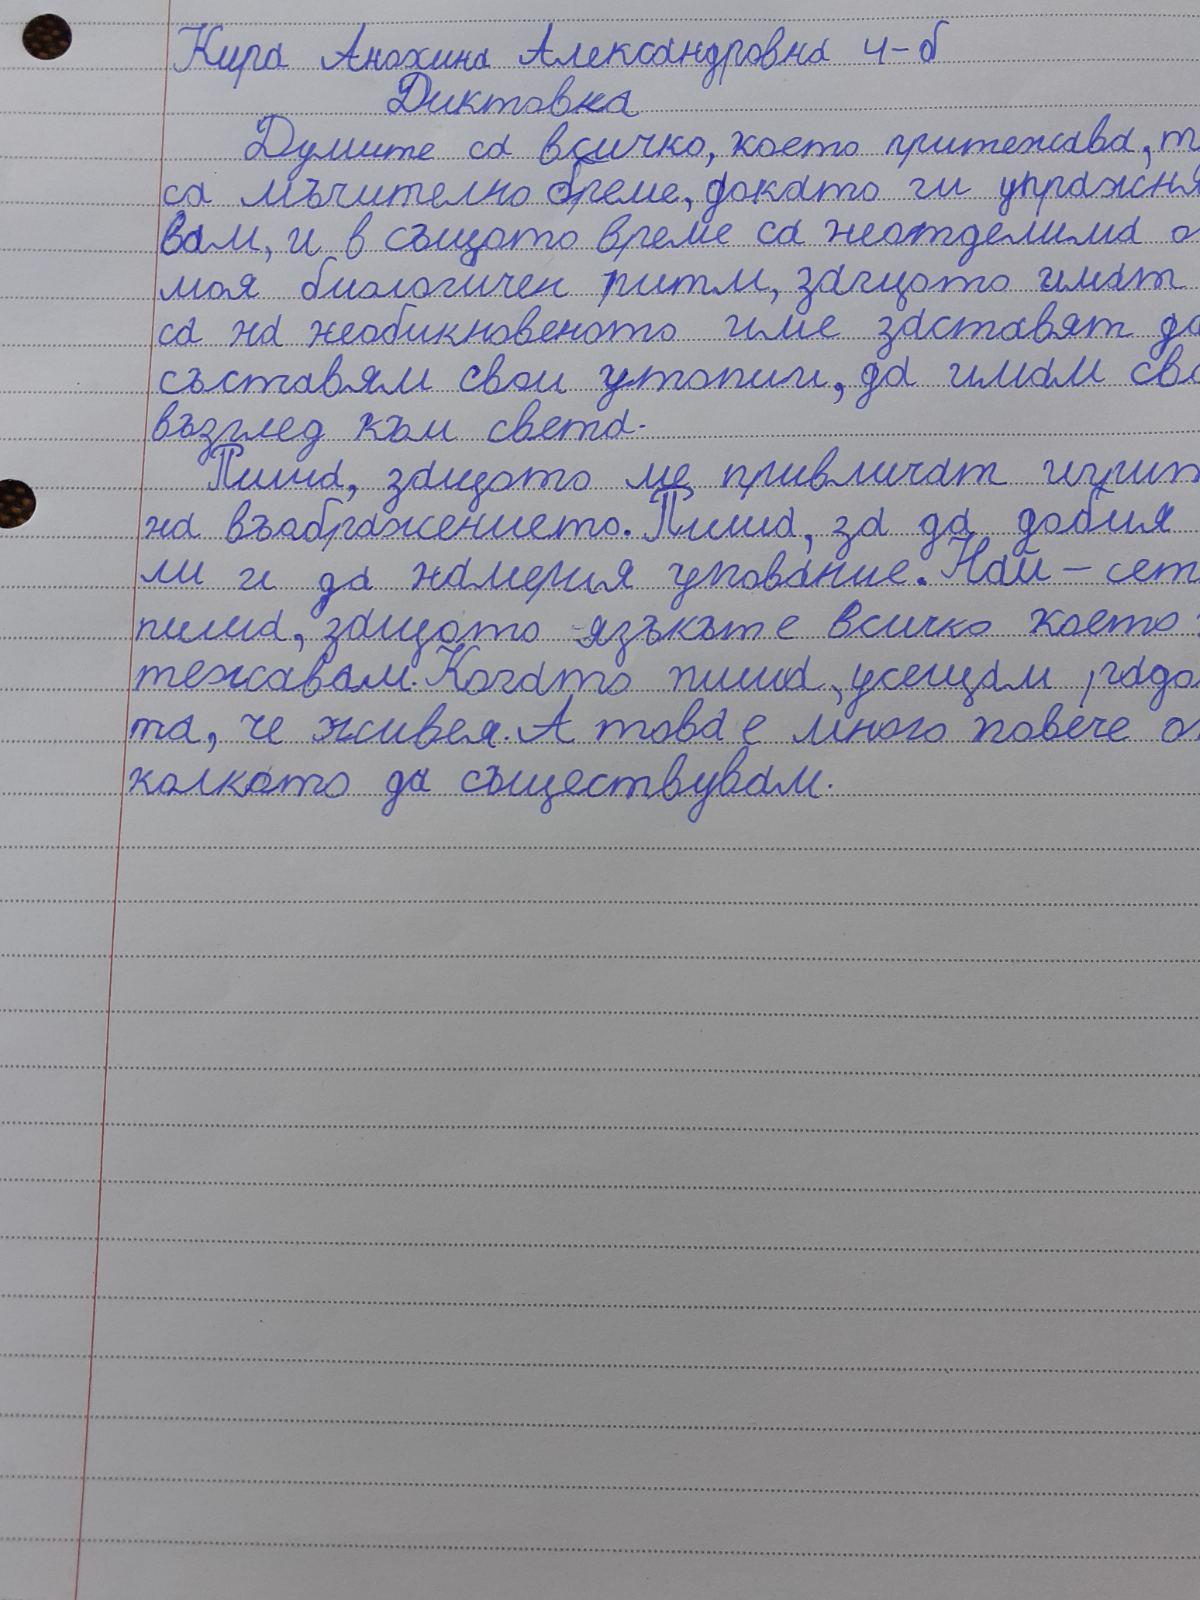 Кира Анохина Александровна 4-б
Диктовка
Думите са всичко, което притежава,
са мъчително бреме, докато ги упражня
вам, и в същото време са неотделима
моя биологичен ритм, защото имат
са на необикновеното име заставят да
съставям свои утопии, да имам
възглед към света.
Пиша, защото ме привличат
на въображението. Пиша, за да добия
ли и да намеря упование. Най-сет
пиша, защото язъкът е всичко което
тежавам. Когато пиша, усещам
та, че живея. А това е много повече
колкото да съществувам.